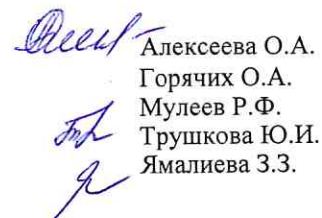 Алексеева О.А.
Горячих О.А.
Мулеев Р.Ф.
Трушкова Ю.И.
Ямалиева З.З.